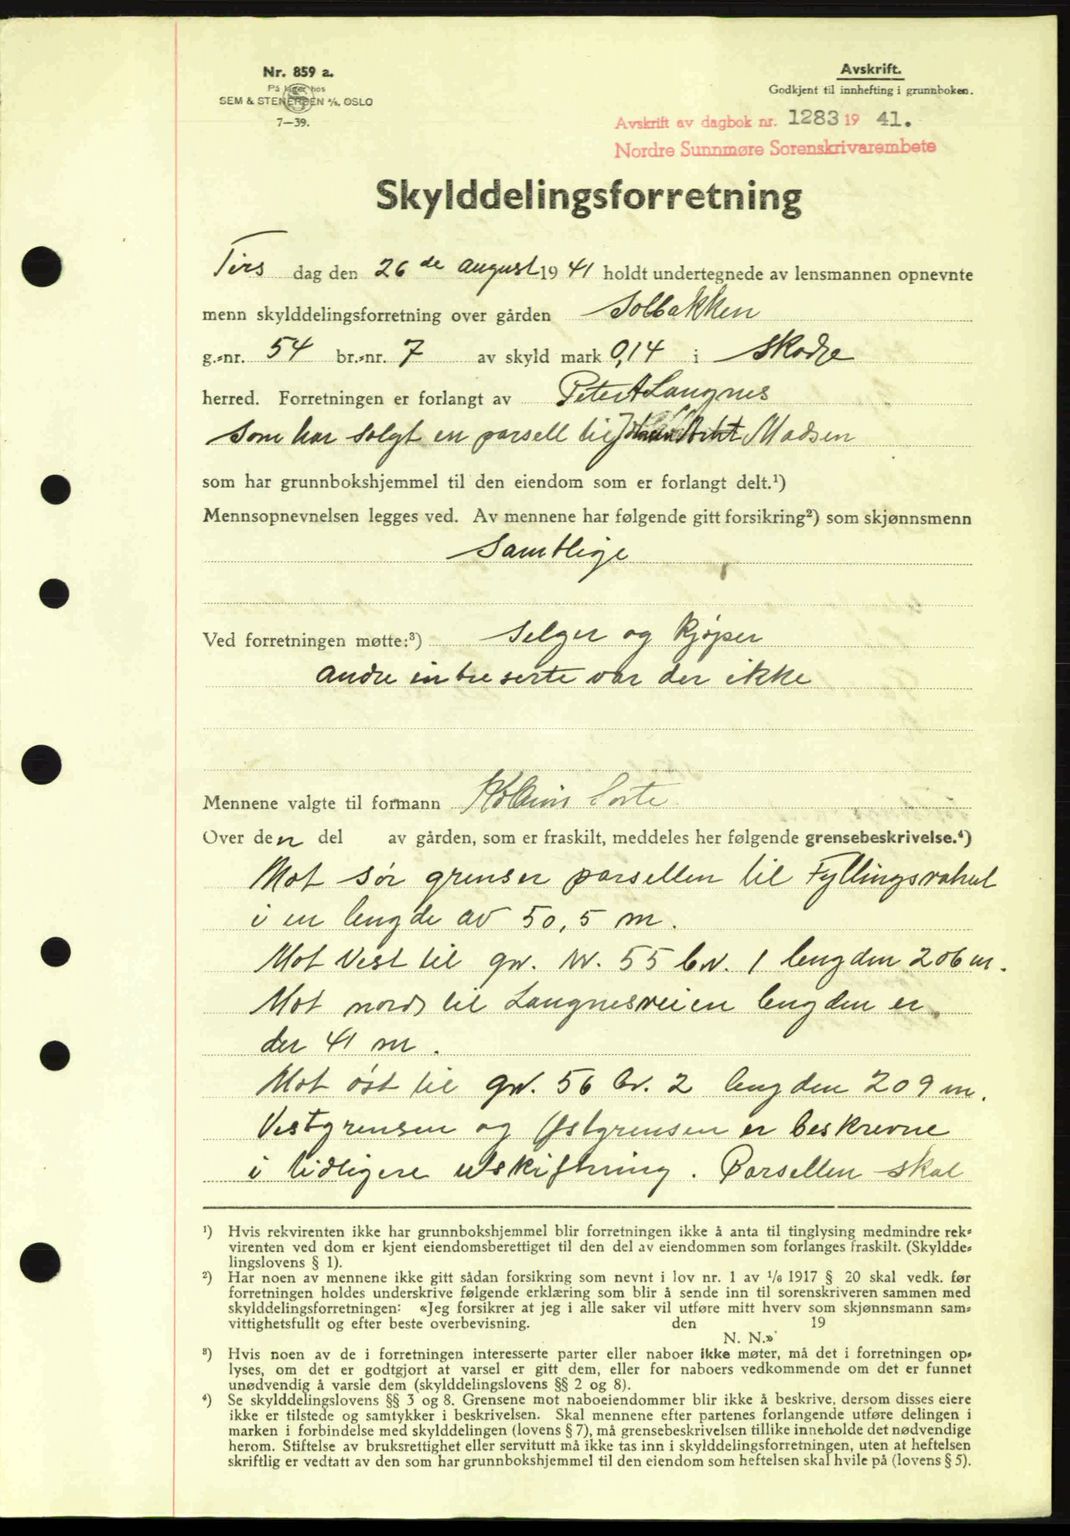 Nr. 859 a.
På lager hos
SEM & STENERSEN A/S, OSLO
7—39.
Avskrift.
Godkjent til innhefting i grunnboken.
Avskrift av dagbok nr. 1283 19 41.
Nordre Sunnmøre Sorenskrivarembete
Skylddelingsforretning
Tirs dag den 26 de august 19 41 holdt undertegnede av lensmannen opnevnte
menn skylddelingsforretning over gården Solbakken
g.-nr. 54 br.-nr. 7 av skyld mark 0,14 i Skodje
herred. Forretningen er forlangt av Peter A Langnes
som har solgt en parsell til Madsen
som har grunnbokshjemmel til den eiendom som er forlangt delt.¹)
Mennsopnevnelsen legges ved. Av mennene har følgende gitt forsikring²) som skjønnsmenn
Samtlige
Ved forretningen møtte:³) Selger og kjøper
andre intreserte var der ikke
Mennene valgte til formann
Over den del av gården, som er fraskilt, meddeles her følgende grensebeskrivelse.⁴)
Mot sør grenser parsellen til
i en lengde av 50,5 m.
Mot Vest til gr. nr. 55 br. 1 lengden 206 m.
Mot nord til Langnesveien lengden er
der 41 m.
Mot øst til gr. 56 br. 2 lengden 209 m.
Vestgrensen og Østgrensen er beskrevne
i tidligere utskiftning. Parsellen skal
¹) Hvis rekvirenten ikke har grunnbokshjemmel blir forretningen ikke å anta til tinglysing medmindre rek-
virenten ved dom er kjent eiendomsberettiget til den del av eiendommen som forlanges fraskilt. (Skyldde-
lingslovens § 1).
²) Har noen av mennene ikke gitt sådan forsikring som nevnt i lov nr. 1 av 1/6 1917 § 20 skal vedk. før
forretningen holdes underskrive følgende erklæring som blir å sende inn til sorenskriveren sammen med
skylddelingsforretningen: «Jeg forsikrer at jeg i alle saker vil utføre mitt hverv som skjønnsmann sam-
vittighetsfullt og efter beste overbevisning. den 19
N. N.»
³) Hvis noen av de i forretningen interesserte parter eller naboer ikke møter, må det i forretningen op-
lyses, om det er godtgjort at varsel er gitt dem, eller for naboers vedkommende om det er funnet
unødvendig å varsle dem (skylddelingslovens §§ 2 og 8).
⁴) Se skylddelingslovens §§ 3 og 8. Grensene mot naboeiendommer blir ikke å beskrive, dersom disses eiere
ikke er tilstede og samtykker i beskrivelsen. Skal mennene efter partenes forlangende utføre delingen i
marken i forbindelse med skylddelingen (lovens § 7), må grensebeskrivelsen tillike inneholde det nødvendige
herom. Stiftelse av bruksrettighet eller servitutt må ikke tas inn i skylddelingsforretningen, uten at heftelsen
skriftlig er vedtatt av den som har grunnbokshjemmel til den eiendom som heftelsen skal hvile på (lovens § 5).